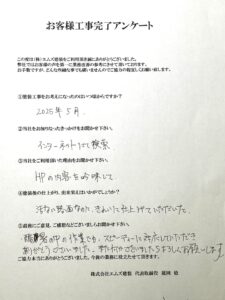 お客様工事完了アンケート
この度は(株)エムズ建装をご利用頂き誠にありがとうございました。
弊社ではお客様の声を第一に業務改善の参考にさせて頂いております。
お手数ですが、どんな些細な事でも構いませんのでご協力の程宜しくお願い致します。
①塗装工事をお考えになったのはいつ頃からですか?
2025年5月
②当社をお知りなったきっかけをお聞かせ下さい。
インターネットにて検索
③当社をご利用頂いた理由をお聞かせ下さい。
HPの内容を吟味して
④塗装後の仕上がり、出来栄えはいかがでしょうか?
きれいに仕上げていただいた
⑤最後にご意見、ご感想などございましたらお聞かせ下さい。
の中の作業でも、スピーディーに対応していただき
ありがとうございました。またおねがいします
ご協力本当にありがとうございました。今後の業務に役立たせて頂きます。
株式会社エムズ建装 代表取締役